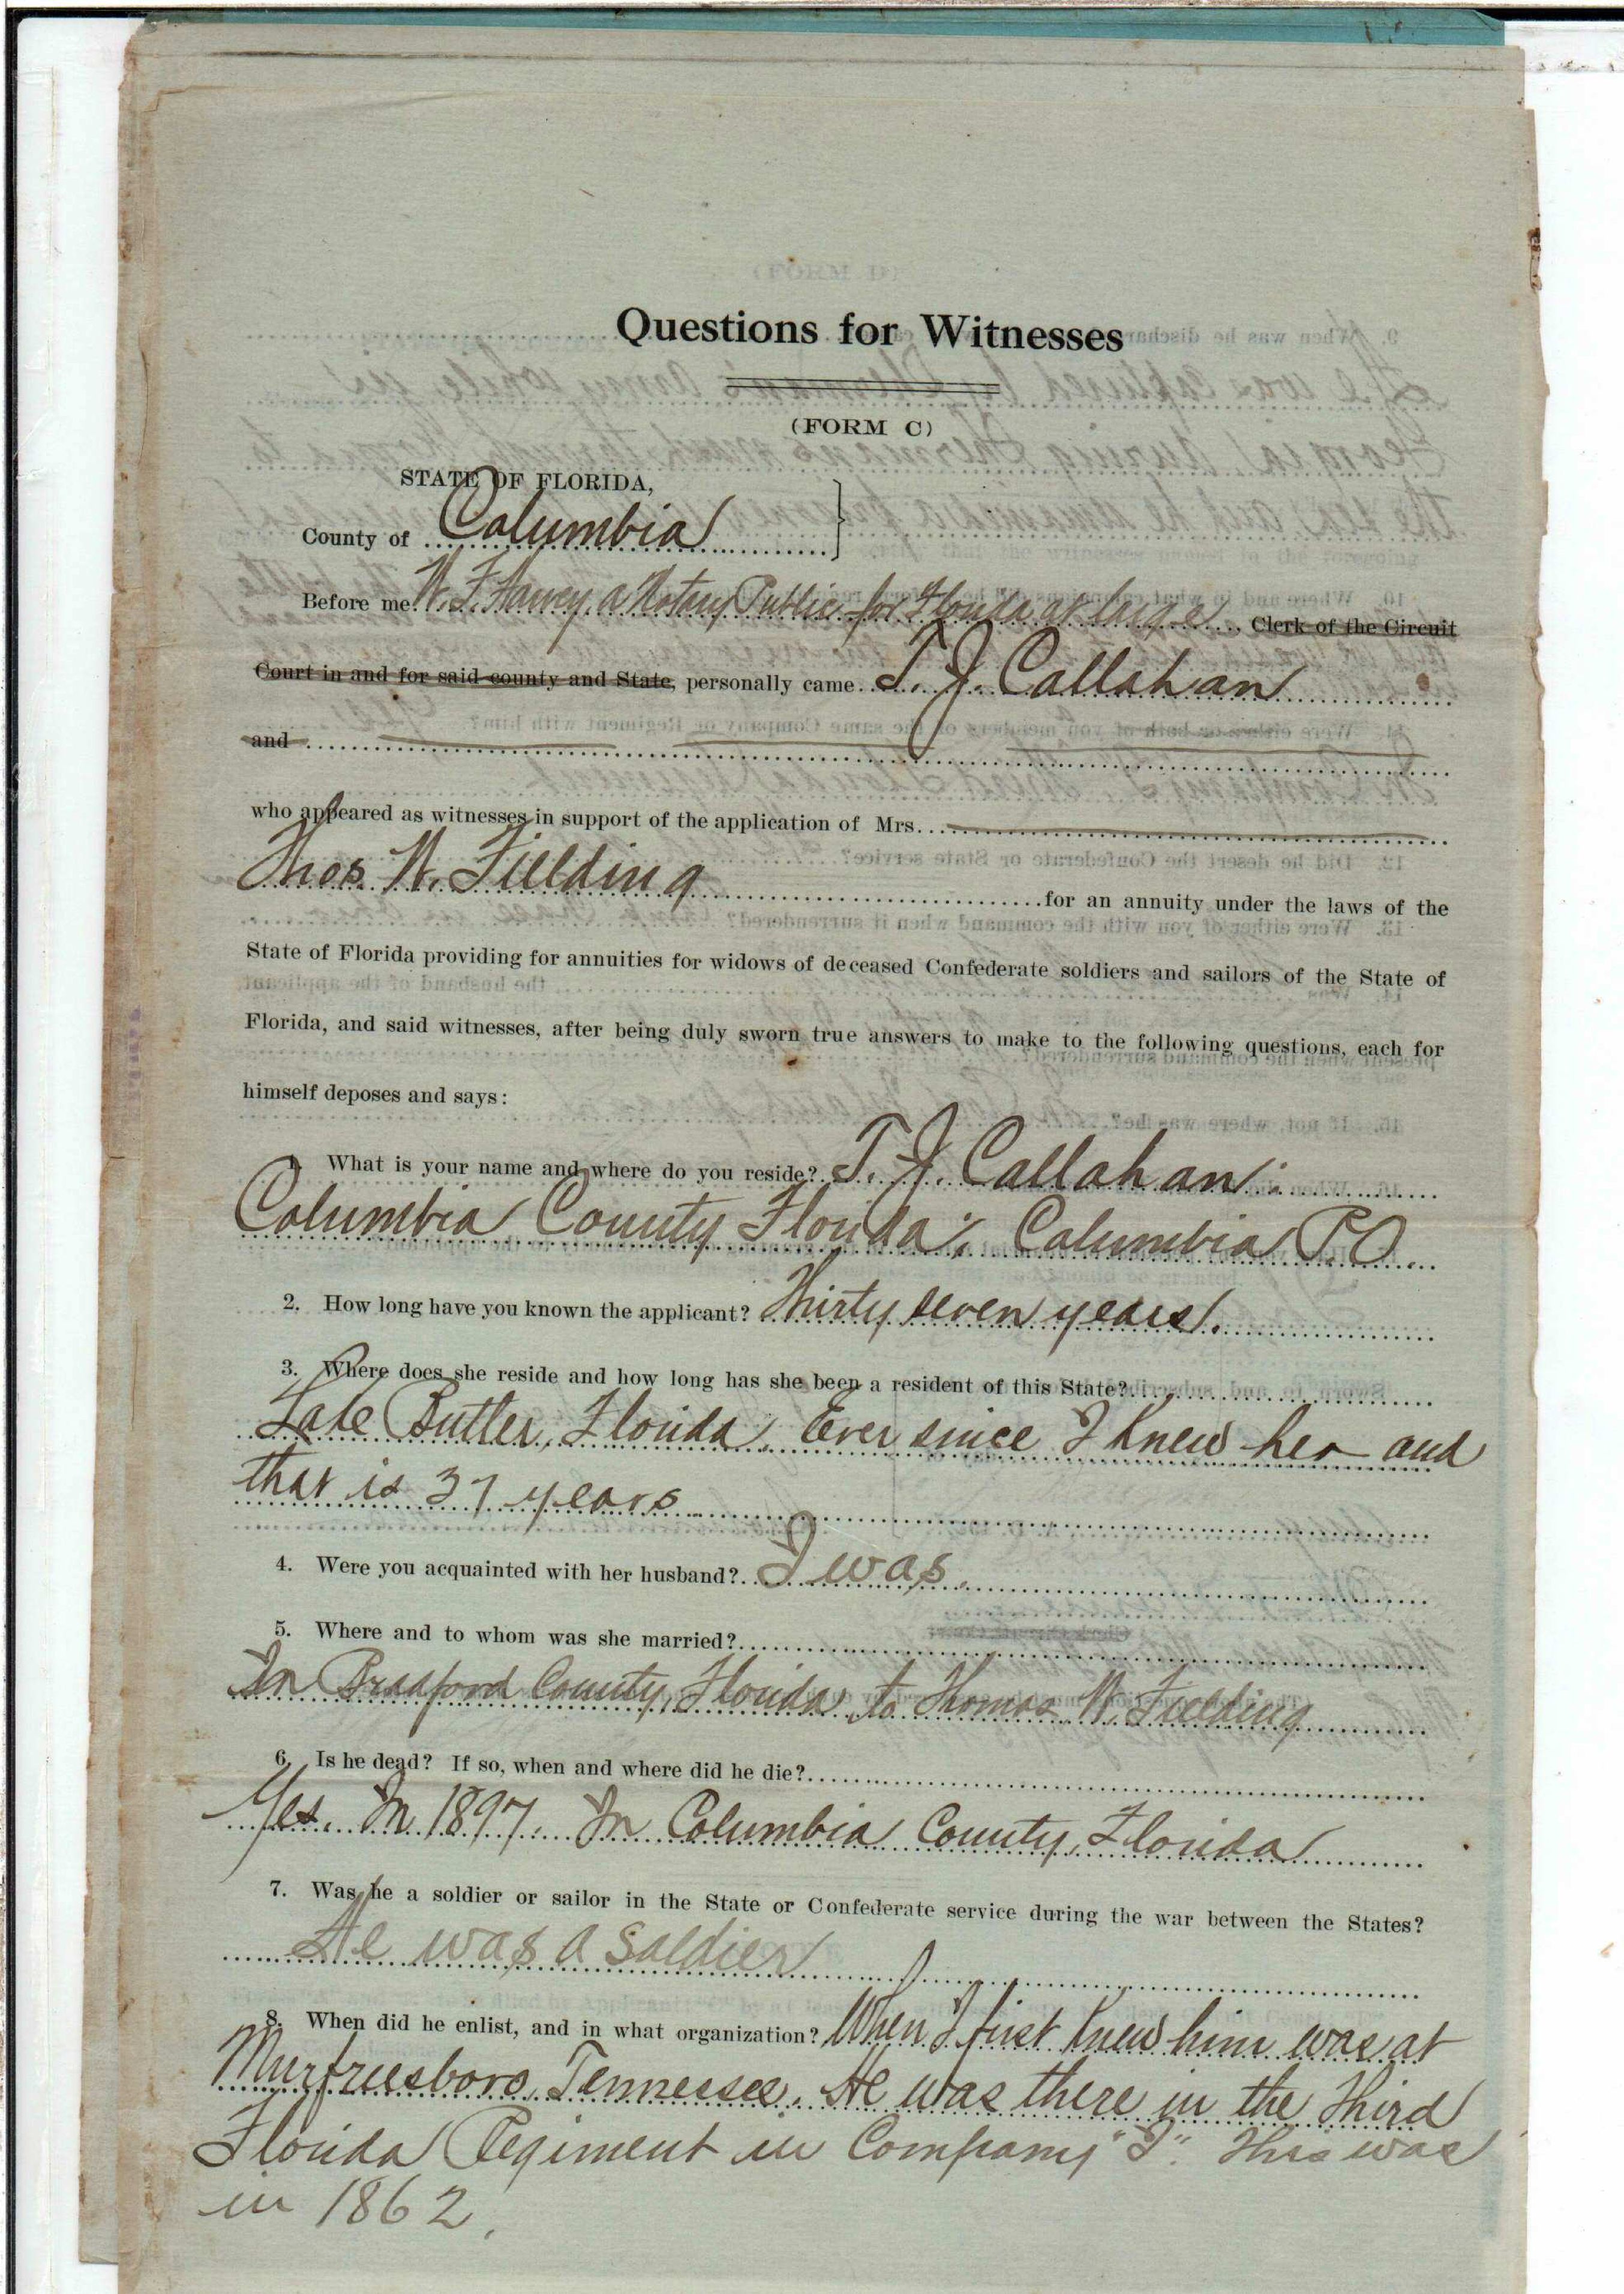 Questions for Witnesses
(FORM C)
STATE OF FLORIDA,
County of Columbia
Before me W. F. Harvey, a Notary Public for Florida at large, Clerk of the Circuit
Court in and for said county and State, personally came T. J. Callahan
and
who appeared as witnesses in support of the application of Mrs.
Thos. W. Fielding for an annuity under the laws of the
State of Florida providing for annuities for widows of deceased Confederate soldiers and sailors of the State of
Florida, and said witnesses, after being duly sworn true answers to make to the following questions, each for
himself deposes and says:
1. What is your name and where do you reside? T. J. Callahan:
Columbia County Florida; Columbia P.O.
2. How long have you known the applicant? Thirty seven years.
3. Where does she reside and how long has she been a resident of this State?
Lake Butler, Florida. Ever since I knew her and
that is 37 years
4. Were you acquainted with her husband? I was.
5. Where and to whom was she married?
In Bradford County, Florida, to Thomas W. Fielding
6. Is he dead? If so, when and where did he die?
Yes. In 1897. In Columbia County, Florida
7. Was he a soldier or sailor in the State or Confederate service during the war between the States?
He was a soldier
8. When did he enlist, and in what organization? When I first knew him was at
Murfreesboro, Tennessee. He was there in the Third
Florida Regiment in Company "I". This was
in 1862.